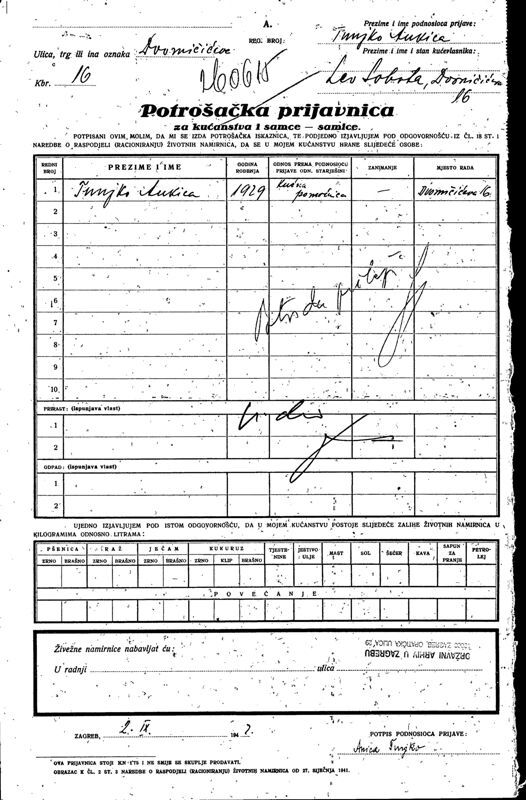 A.
REG. BROJ:
Prezime i ime podnosioca prijave:
Tunjko Ankica
Ulica, trg ili ina oznaka Dvorničićeva
Prezime i ime i stan kućevlasnika:
Kbr. 16
Lev Sobota, Dvorničićeva
16
Potrošačka prijavnica
za kućanstva i samce — samice.
POTPISANI OVIM, MOLIM, DA MI SE IZDA POTROŠAČKA ISKAZNICA, TE PODJEDNO IZJAVLJUJEM POD ODGOVORNOŠĆU IZ ČL. 18 ST. 1
NAREDBE O RASPODJELI (RACIONIRANJU) ŽIVOTNIH NAMIRNICA, DA SE U MOJEM KUĆANSTVU HRANE SLIJEDEĆE OSOBE:
REDNI BROJ PREZIME I IME GODINA ROĐENJA ODNOS PREMA PODNOSIOCU PRIJAVE ODN. STARJEŠINI ZANIMANJE MJESTO RADA
1. Tunjko Ankica 1929 kućna pomoćnica — Dvorničićeva 16
2
3
4
5
6
7
8
9
10.
PRIRAST: (ispunjava vlast)
1
2
OTPAD: (ispunjava vlast)
1
2
UJEDNO IZJAVLJUJEM POD ISTOM ODGOVORNOŠĆU, DA U MOJEM KUĆANSTVU POSTOJE SLIJEDEĆE ZALIHE ŽIVOTNIH NAMIRNICA U
KILOGRAMIMA ODNOSNO LITRAMA:
PŠENICA RAŽ JEČAM KUKURUZ TJESTENINE JESTIVO ULJE MAST SOL ŠEĆER KAVA SAPUN ZA PRANJE PETROLEJ
ZRNO BRAŠNO ZRNO BRAŠNO ZRNO BRAŠNO ZRNO KLIP BRAŠNO
POVEĆANJE
Živežne namirnice nabavljat ću:
DRŽAVNI ARHIV U ZAGREBU
ZAGREB, OPATIČKA ULICA 29
U radnji ulica
ZAGREB, 2. IX. 194 2.
POTPIS PODNOSIOCA PRIJAVE:
Anica Tunjko
OVA PRIJAVNICA STOJI KN —.75 I NE SMIJE SE SKUPLJE PRODAVATI.
OBRAZAC K ČL. 2 ST. 3 NAREDBE O RASPODJELI (RACIONIRANJU) ŽIVOTNIH NAMIRNICA OD 27. SIJEČNJA 1941.